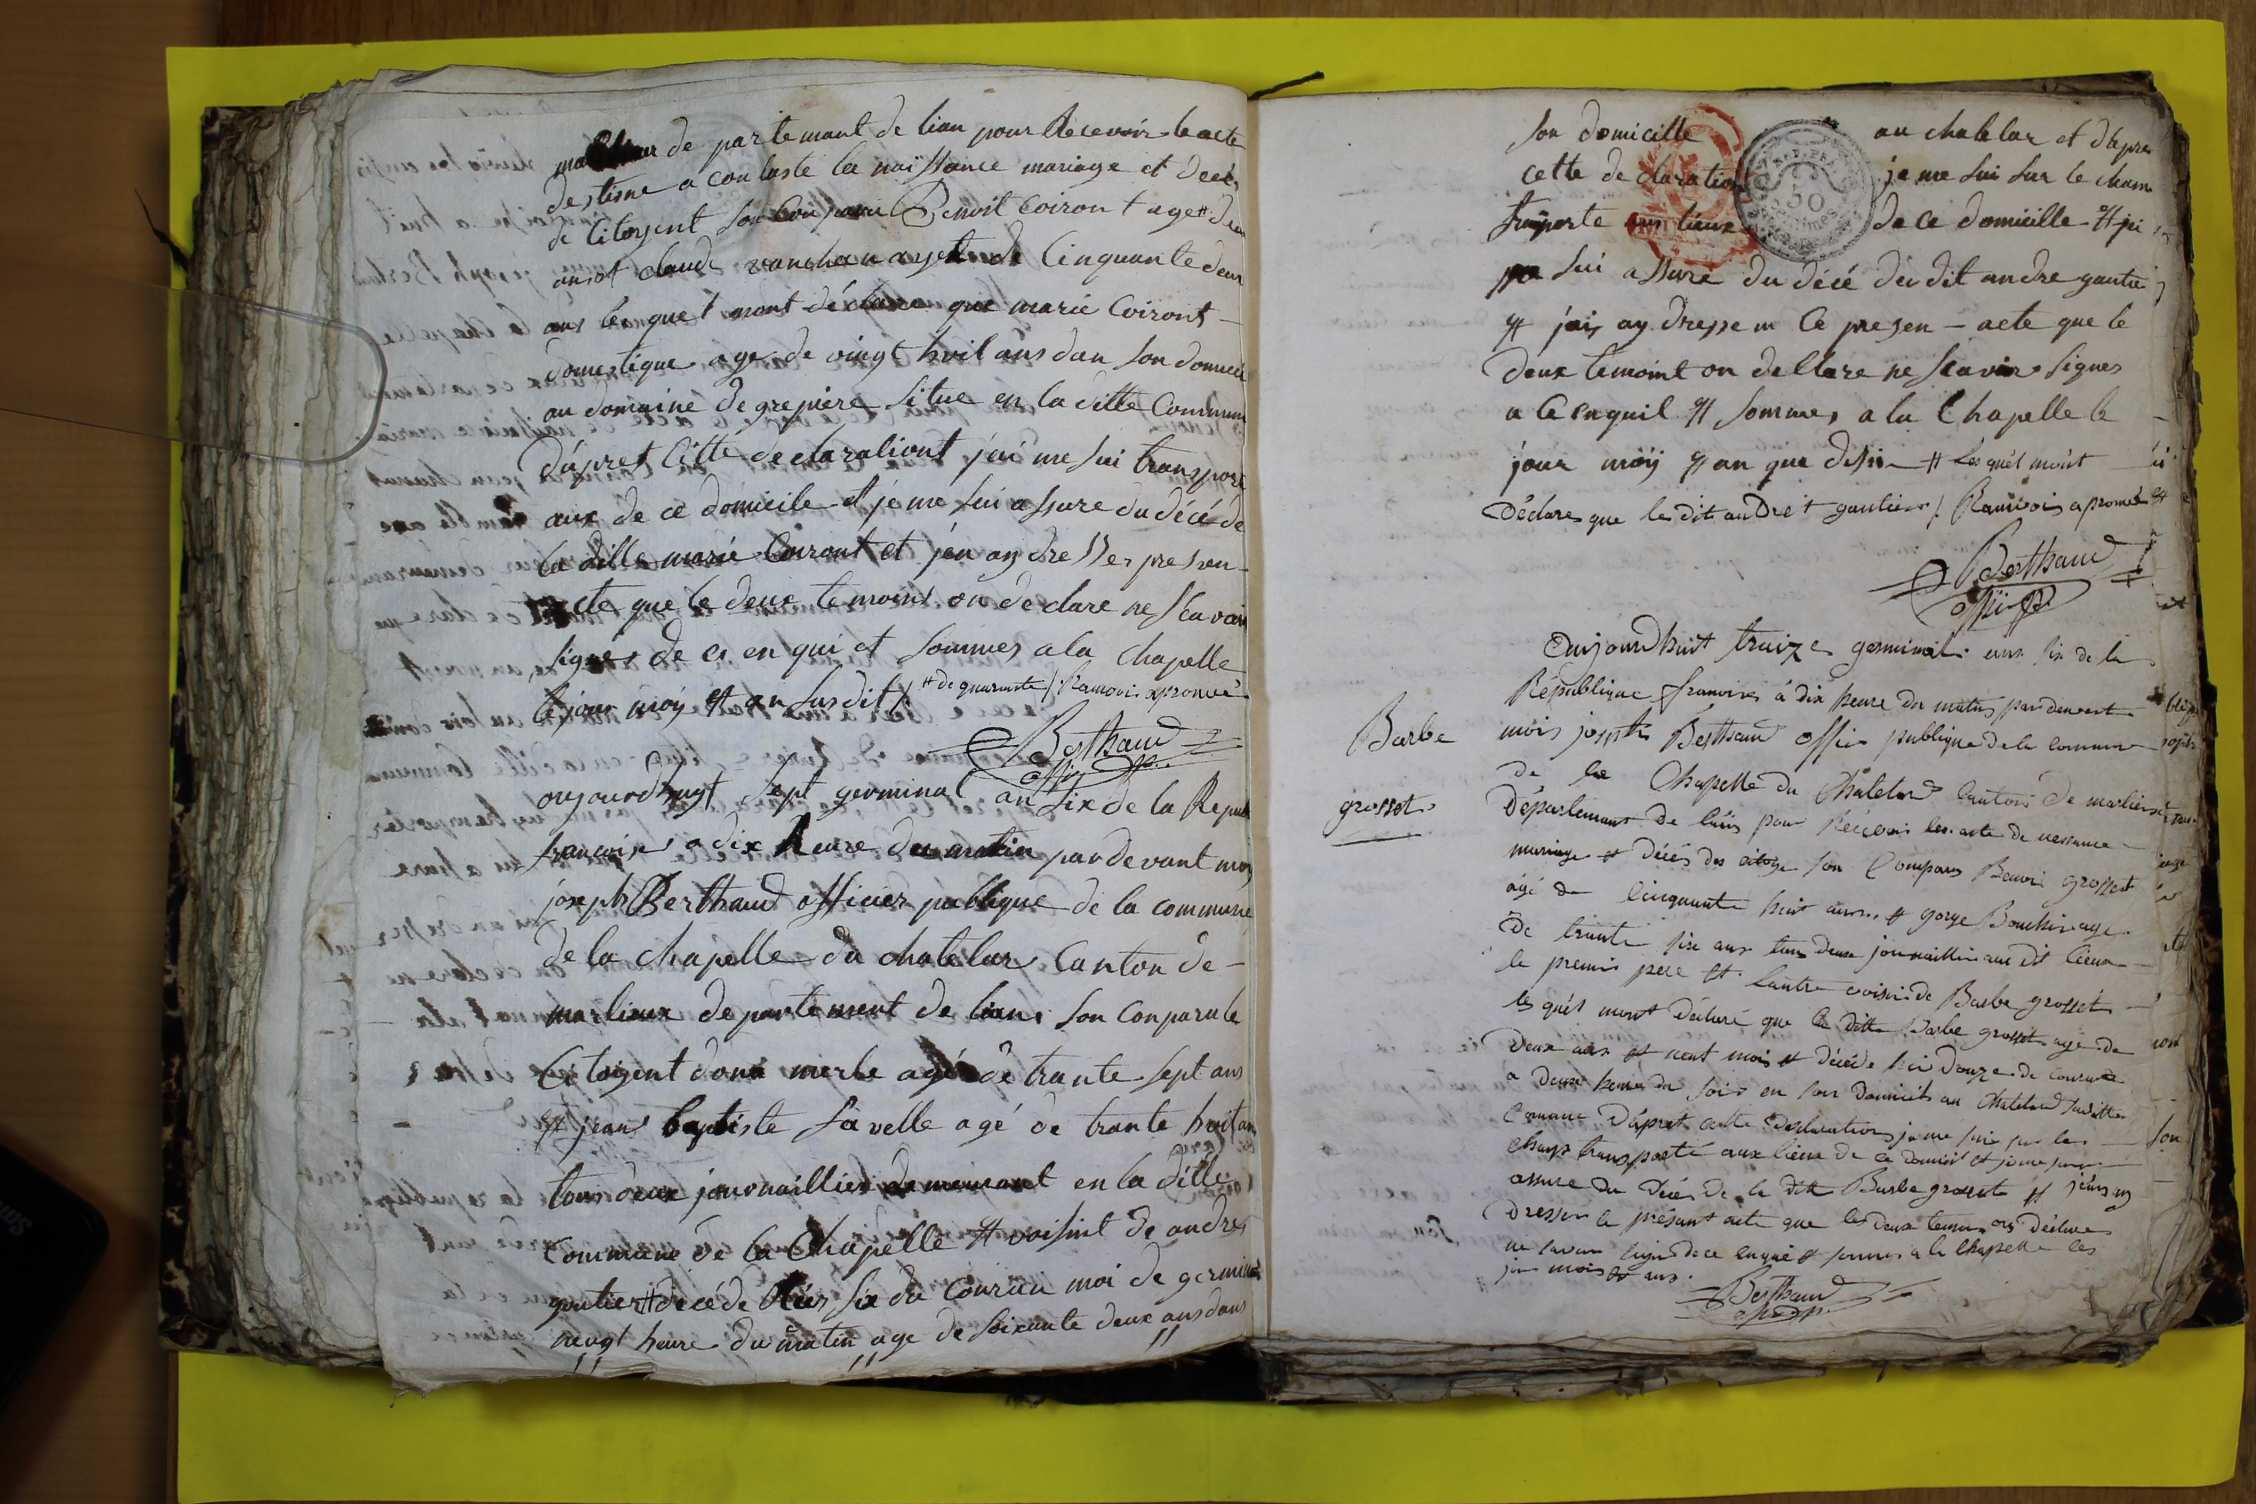 de partemant de lian pour Recevoir le acte
destine a constaté la naissance mariage et decé
de Citoyent son Conparu Benoit Coiront age # deux
ans et claude vanchan age de Cinquante deux
ans les quel mont déclare que marie Coiront
domestique age de vingt huit ans dan son domicile
au domaine de grepiere situe en la ditte Commune
d'apret Citte déclarationt j'ai me sui transporé
aux de ce domicile et je me sui assure du décé de
la ditte marie Coiront et j'en ay dresser presen
acte que le deux temoins on declare ne scavoir
signer de ce en qui et sommes a la Chapelle
le jour moy et an susdit / # de quarante / Ramoois aprouvé
Berthaud
offi p.
oujourdhuyt sept germinal an six de la Republ
francoise a dix heure du matin par devant moy
joseph Berthaud officier publique de la commune
de la chapelle du chatelar Canton de
marlieux departement de lian son conparu le
Citoyent dona merle agé de trante sept ans
et jean baptiste favelle agé de trante huit ans
tous deux journaillier demeurant en la ditte
Commune de la Chapelle et voisint de andre
gautier # decéde hier six du Couran moi de germinal
neugt heure du matin age de soixante deux ans dans
son domicille au chatelar et d'apres
cette declaration je me sui sur le cham
transporte aux lieux de ce domicille et je
me sui assure du décé du dit andre gautie
et j'ais ay dresse m ce presen acte que le
deux temoint on dellare ne scavoir signes
a ce enquil et sommes a la Chapelle le
jour moÿ et an que dessu # les quel mont
Déclare que le dit andre t gautier / Ramoois aprouvé
Berthaud
offi p
Barbe
grosset
Aujourdhuit traize germinal ans six de la
Republique francoise à dix heure du matin pardevant
mois joseph Berthaud offier publique de la commune
de la Chapelle du Chatelard Canton de marlieux
Département de l'ain pour Recevoir les acte de nessance
mariage et décés des citoye son Comparus Benoi grosset
agé de Cinquante huit ans et gorge Bouchir age
de trante six ans tous deux journaillier au dit lieux
le premier pere et l'autre voisin de Barbe grosset
les quels mont déclaré que la ditte Barbe grosset age de
deux ans et neuf mois et décéde hier douze de courant
a deux heure du soir en son domicile au Chatelard suditte
Comune D'apret cette declaration je me suis sur le
champ transporté aux lieux de ce domicil et je me suis
assure du décés de la ditte Barbe grosset et j'ens ay
dresser le présant acte que les deux temoins ons déclare
ne savoir signe de ce enqui et sommes a la Chapelle les
jour mois et ans.
Berthaud
offi p.